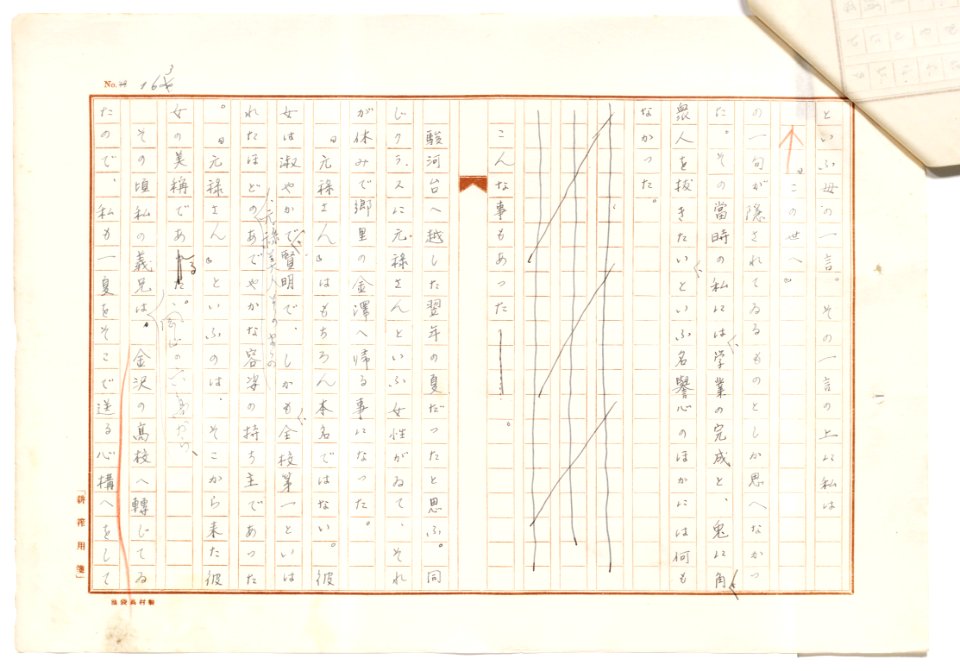 No. 163
といふ母の一言。その一言の上に私は
『この世へ』
の一句が隠されてゐるものとしか思へなかつ
た。その當時の私には学業の完成と、兎に角
衆人を抜きたいといふ名譽心のほかには何も
なかつた。
こんな事もあつた――。
駿河台へ越した翌年の夏だつたと思ふ。同
じクラスに元禄さんといふ女性がゐて、それ
が休みで郷里の金澤へ帰る事になつた。
『元禄さん』はもちろん本名ではない。彼
女は淑やかで賢明で、しかも全校第一といは
れたほどのあでやかな容姿の持ち主であつた
。『元禄さん』といふのは、そこから来た彼
女の美稱である。
その頃私の義兄は、金沢の高校へ轉じてゐ
たので、私も一夏をそこで送る心構へをして